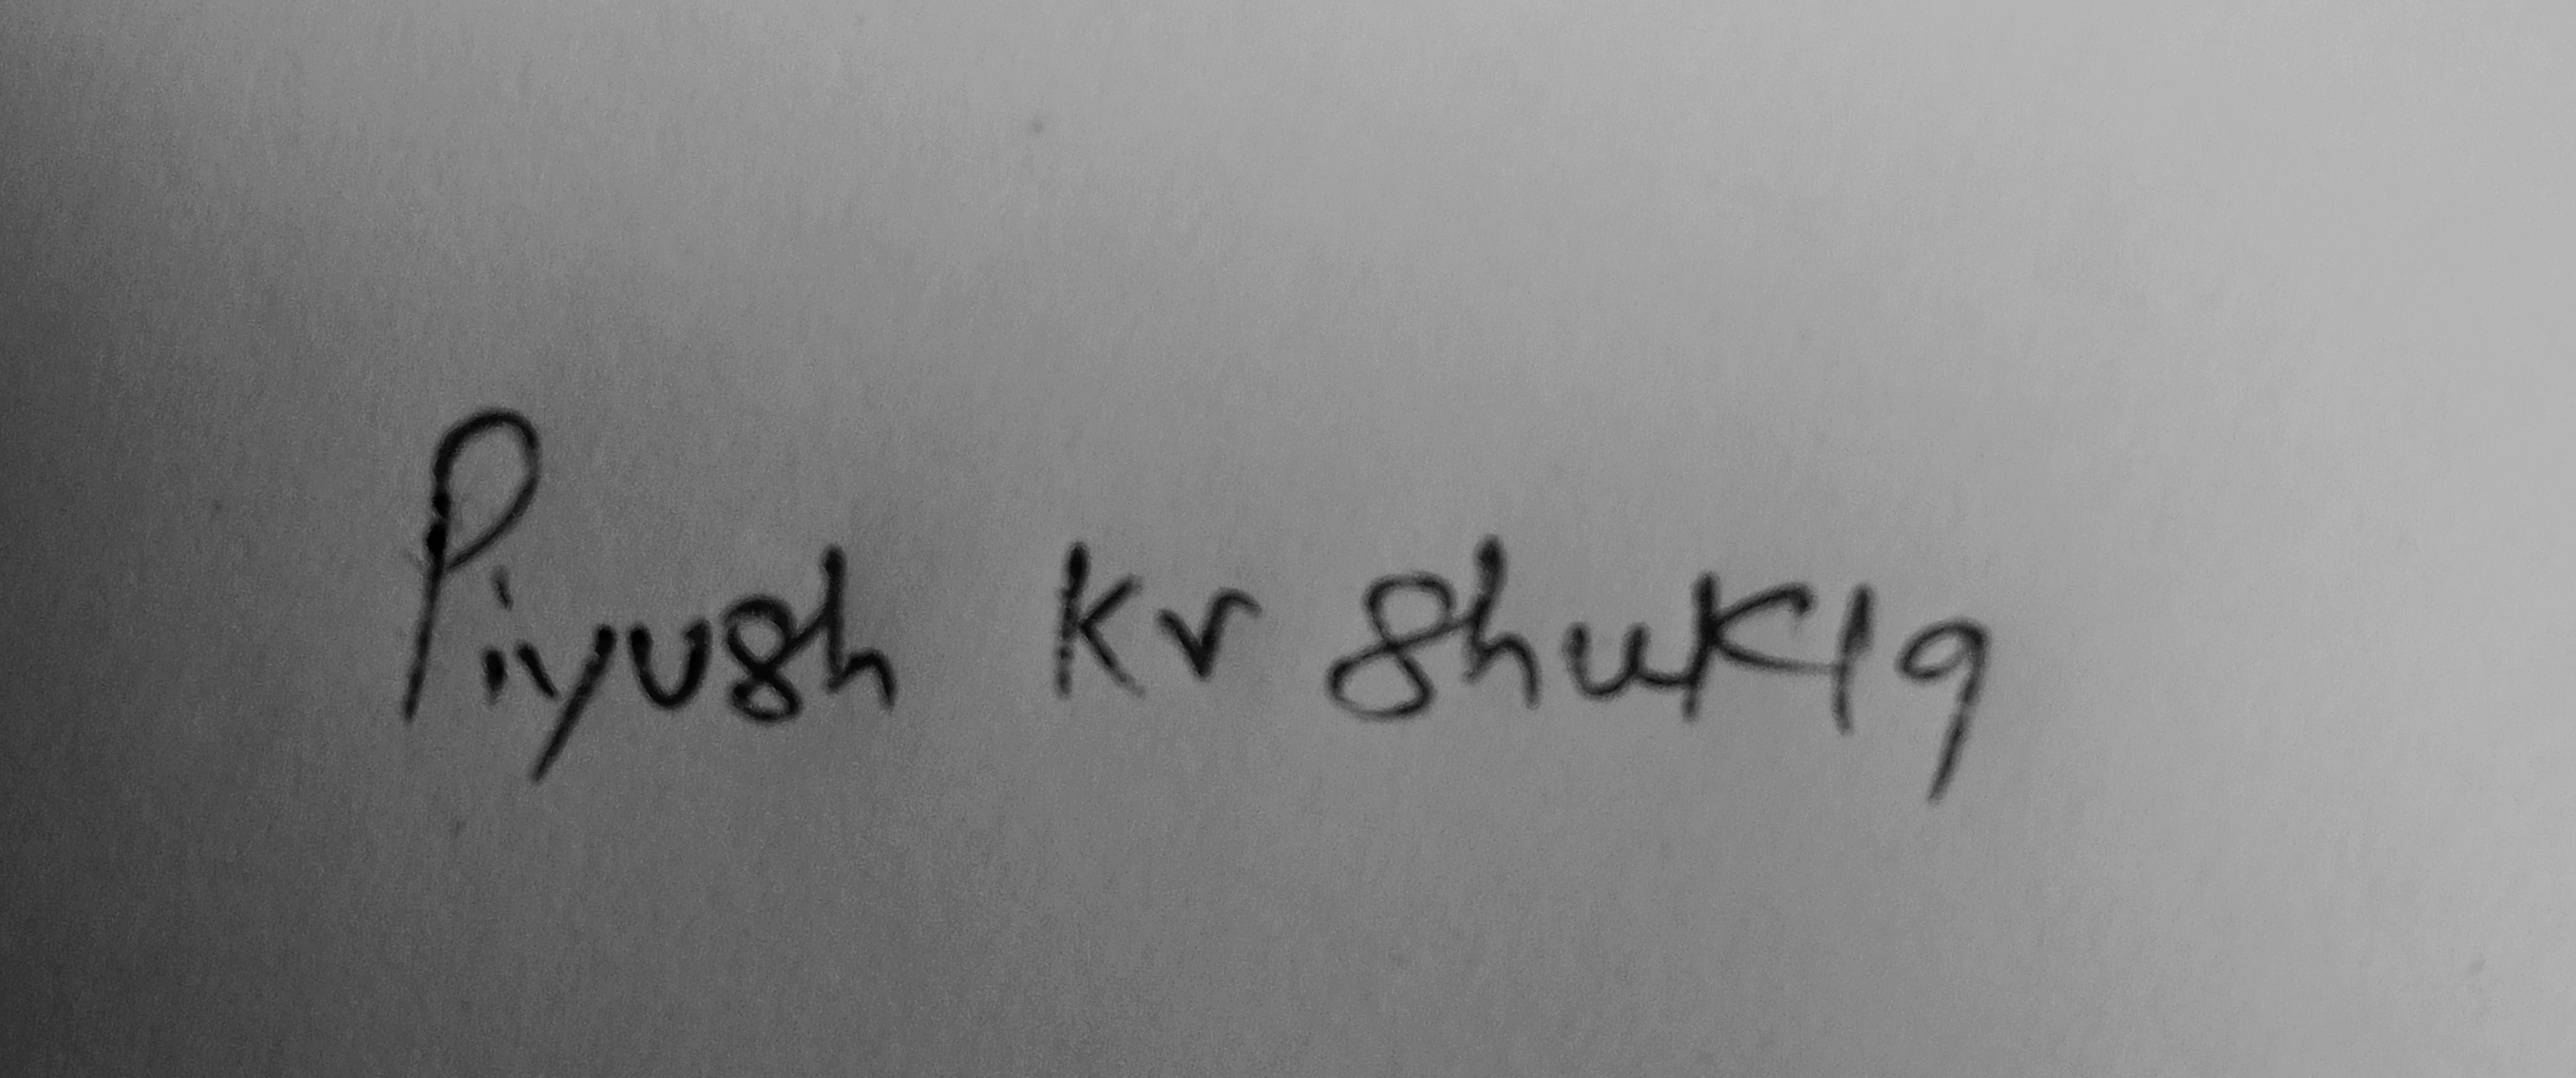 Piyush Kr Shukla